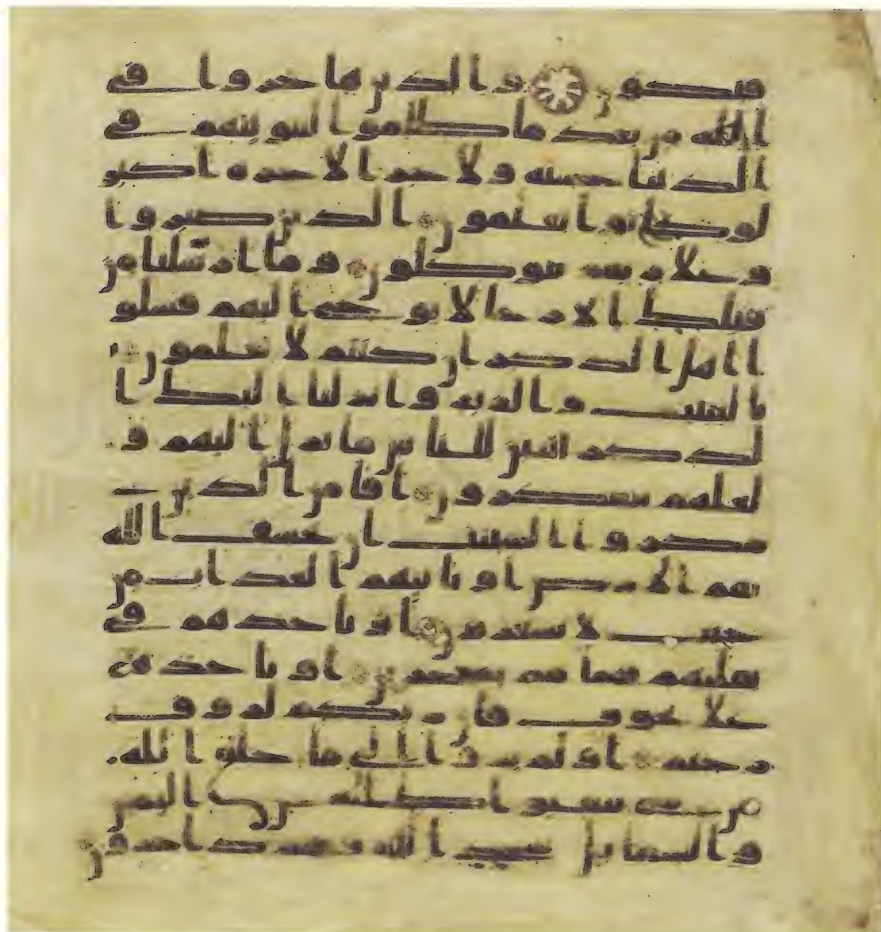 فيكون والذين هاجروا في
الله من بعد ما ظلموا لنبوئنهم في
الدنيا حسنة ولاجر الاخرة اكبر
لو كانوا يعلمون الذين صبروا
وعلى ربهم يتوكلون وما ارسلنا من
قبلك الا رجالا يوحى اليهم فسلو
ا اهل الذكر ان كنتم لا تعلمون
بالبينت والزبر وانزلنا اليك ا
لذكر لتبين للناس ما نزل اليهم و
لعلهم يتفكرون افامن الذين
مكروا السيت ان يخسف الله
بهم الارض او ياتيهم العذاب من
حيث لا يشعرون او ياخذهم في
تقلبهم فما هم بمعجزين او ياخذهم
على تخوف فان ربكم لروف
رحيم اولم يروا الى ما خلق الله
من شيء يتفيوا ظلله عن اليمين
والشمايل سجدا لله وهم داخرون